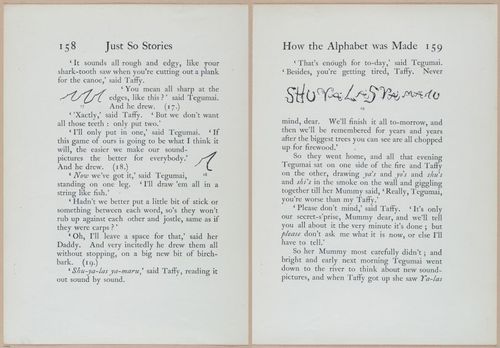 158 Just So Stories
'It sounds all rough and edgy, like your
shark-tooth saw when you're cutting out a plank
for the canoe,' said Taffy.
'You mean all sharp at the
edges, like this?' said Tegumai.
And he drew. (17.)
'Xactly,' said Taffy. 'But we don't want
all those teeth: only put two.'
'I'll only put in one,' said Tegumai. 'If
this game of ours is going to be what I think it
will, the easier we make our sound-
pictures the better for everybody.'
And he drew. (18.)
'Now we've got it,' said Tegumai,
standing on one leg. 'I'll draw 'em all in a
string like fish.'
'Hadn't we better put a little bit of stick or
something between each word, so's they won't
rub up against each other and jostle, same as if
they were carps?'
'Oh, I'll leave a space for that,' said her
Daddy. And very incitedly he drew them all
without stopping, on a big new bit of birch-
bark. (19.)
'Shu-ya-las ya-maru,' said Taffy, reading it
out sound by sound.
How the Alphabet was Made 159
'That's enough for to-day,' said Tegumai.
'Besides, you're getting tired, Taffy. Never
mind, dear. We'll finish it all to-morrow, and
then we'll be remembered for years and years
after the biggest trees you can see are all chopped
up for firewood.'
So they went home, and all that evening
Tegumai sat on one side of the fire and Taffy
on the other, drawing ya's and yo's and shu's
and shi's in the smoke on the wall and giggling
together till her Mummy said, 'Really, Tegumai,
you're worse than my Taffy.'
'Please don't mind,' said Taffy. 'It's only
our secret-s'prise, Mummy dear, and we'll tell
you all about it the very minute it's done; but
please don't ask me what it is now, or else I'll
have to tell.'
So her Mummy most carefully didn't; and
bright and early next morning Tegumai went
down to the river to think about new sound-
pictures, and when Taffy got up she saw Ya-las